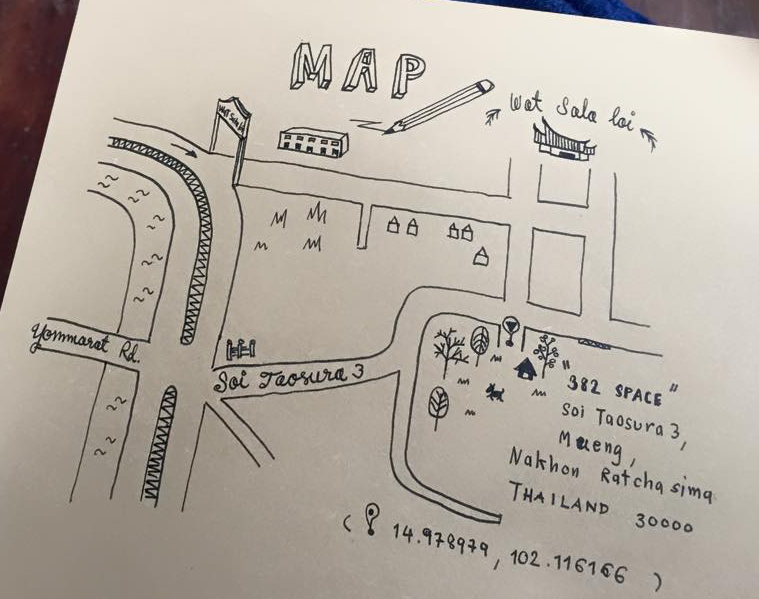 MAP
Wat Sala loi
Yommarat Rd.
Soi Taosura 3
"382 SPACE"
Soi Taosura 3,
Mueng,
Nakhon Ratchasima
THAILAND 30000
( 14.978979, 102.116166 )